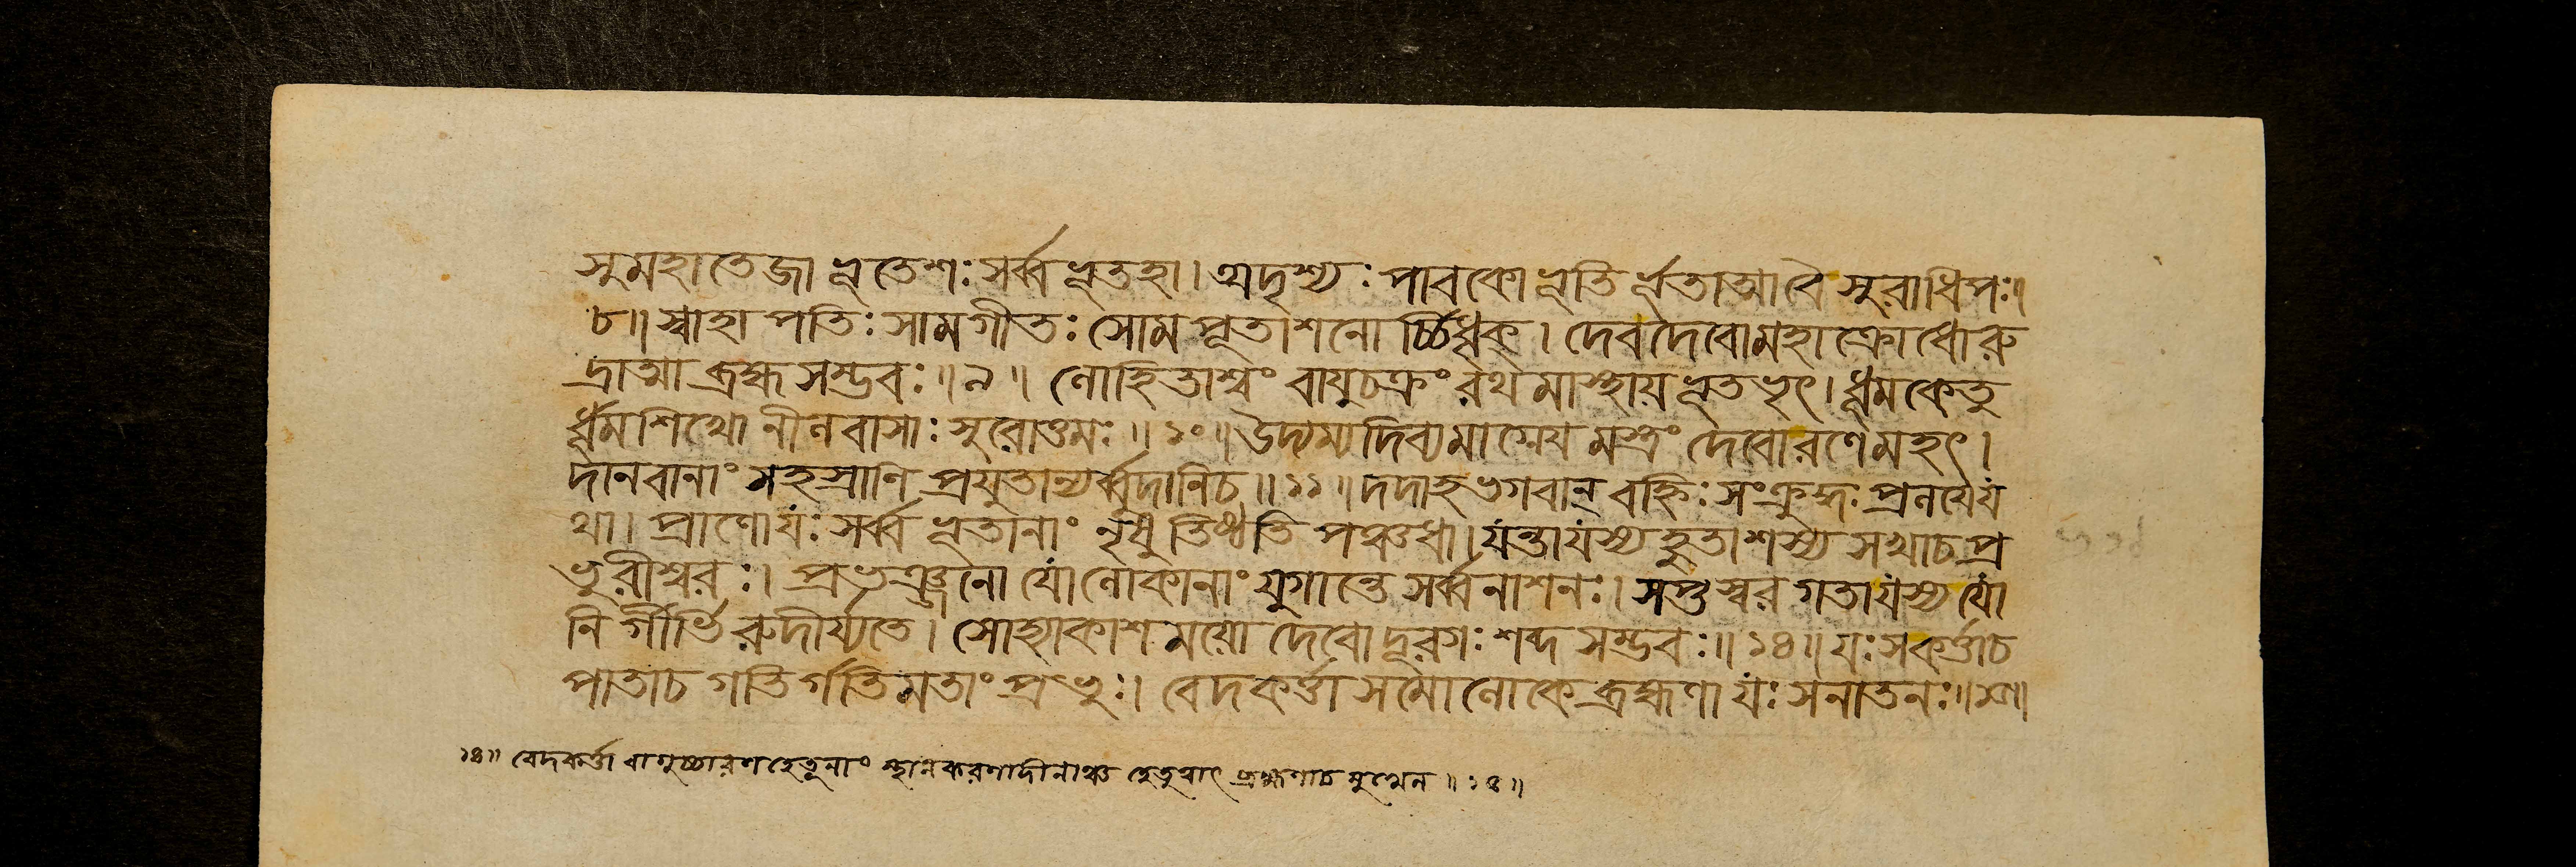 সুমহাতেজা ভূতেশঃ সর্ব্বভূতহা। অদৃশ্যঃ পাবকো ভূতি র্ভূতাত্মা বৈ সুরাধিপঃ॥
৮॥ স্বাহাপতিঃ সামগীতঃ সোমপূতাশনোর্চ্চিধৃক্। দেবদেবোমহাক্রোধোরু
দ্রাত্মা ব্রহ্মসম্ভবঃ॥৯॥ লোহিতাশ্বং বায়ুচক্রং রথমাস্থায় ভূতভৃৎ। ধূমকেতু
র্ধূমশিখো নীলবাসাঃ সুরোত্তমঃ॥১০॥ উদ্যম্য দিব্যমাগ্নেয় মস্ত্রং দেবোরণে মহৎ।
দানবানাং সহস্রাণি প্রযুতান্যর্ব্বুদানিচ॥১১॥ দদাহ ভগবান্ বহ্নিঃ সংক্রুদ্ধঃ প্রলয়েয
থা। প্রাণোযঃ সর্ব্বভূতানাং নৃষু তিষ্ঠতি পঞ্চধা। যন্তাযস্য হুতাশস্য সখাচ প্র
ভুরীশ্বরঃ। প্রভঞ্জনো যোলোকানাং যুগান্তে সর্ব্বনাশনঃ। সপ্তস্বর গতাযস্য যো
নি র্গীর্ভি রুদীর্য্যতে। সোহ্যাকাশময়ো দেবো দূরগঃ শব্দসম্ভবঃ॥১৪॥ যঃ সকর্ত্তাচ
পাতাচ গতির্গতিমতাং প্রভুঃ। বেদকর্ত্তা সমোলোকে ব্রহ্মণা যঃ সনাতনঃ॥১৫॥
১৪॥ বেদকর্ত্তা বাগুচ্চারণহেতূনাং স্থানকরণাদীনাঞ্চ হেতুত্বাৎ ব্রহ্মণাচ মুখেন॥১৫॥